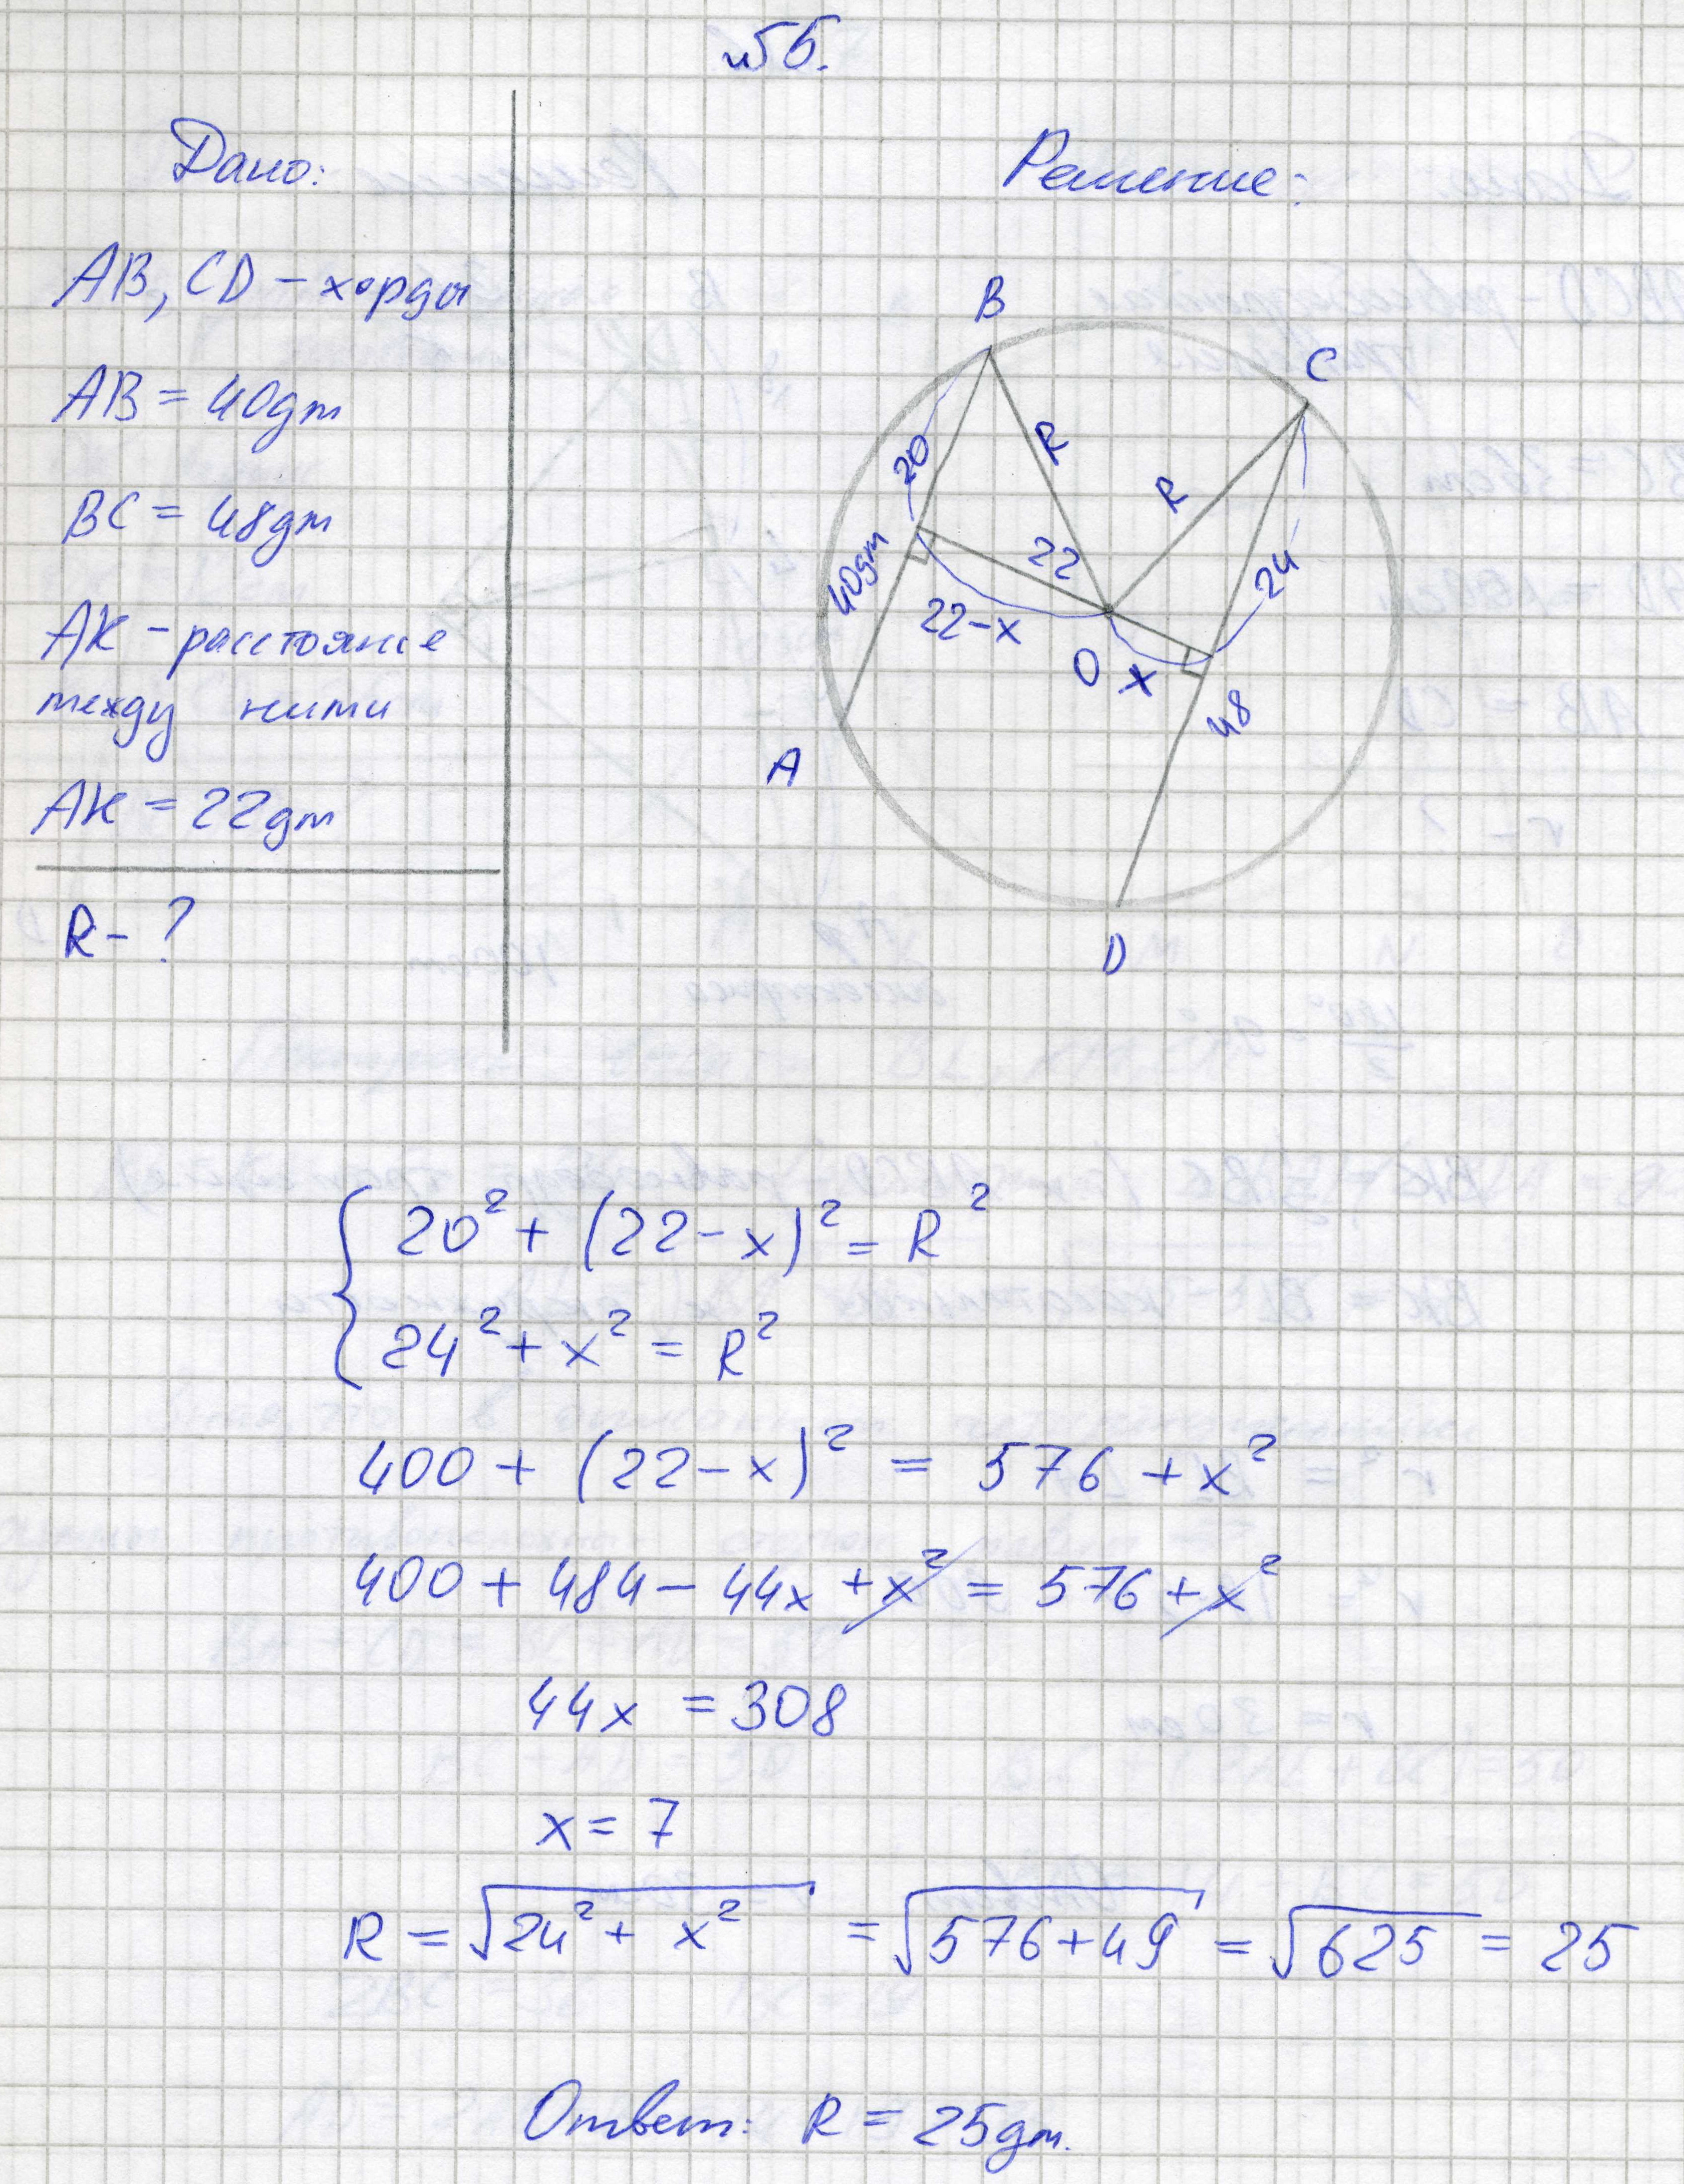 №5б.
Дано:
AB, CD – хорды
AB = 40дм
BC = 48дм
AK – расстояние
между ними
AK = 22дм
R – ?
Решение:
B
C
20
R
R
40дм
22
24
22-x
O
x
48
A
D
20² + (22-x)² = R²
24² + x² = R²
400 + (22-x)² = 576 + x²
400 + 484 - 44x + x² = 576 + x²
44x = 308
x = 7
R = √24² + x² = √576+49 = √625 = 25
Ответ: R = 25дм.